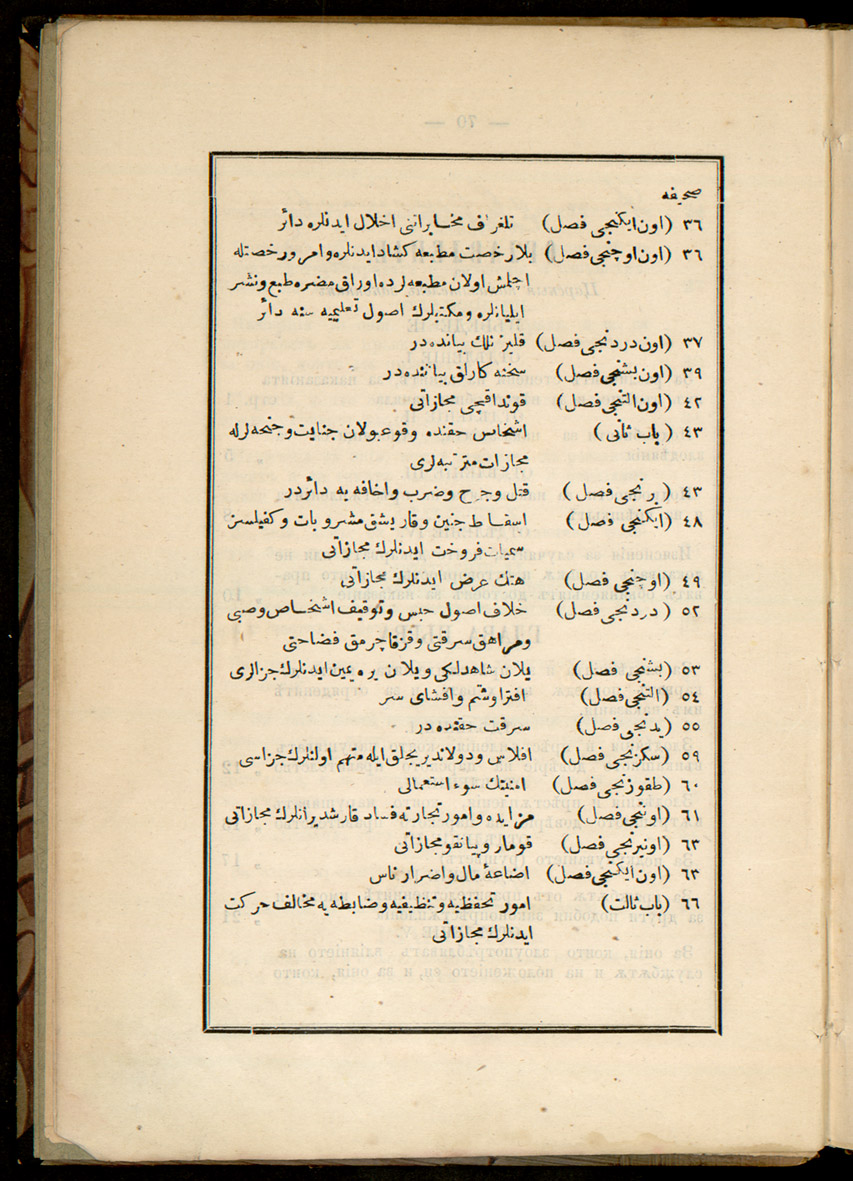 صحیفه
٣٦ (اون ایکنجی فصل) تلغراف مخابراتنی اخلال ایدنلره دائر
٣٦ (اون اوچنجی فصل) بلا رخصت مطبعه کشاد ایدنلره و امر و رخصتله
اچلمش اولان مطبعه لرده اوراق مضره طبع و نشر
ایلیانلره و مکتبلرك اصول تعلیمیه سنه دائر
٣٧ (اون دردنجی فصل) قلپز نلك بیانده در
٣٩ (اون بشنجی فصل) سخته کارلق بیاننده در
٤٢ (اون التنجی فصل) قونداقچی مجازاتی
٤٣ (باب ثانی) اشخاس حقنده وقوعبولان جنایت و جنحه لرله
مجازات مترتبه لری
٤٣ (برنجی فصل) قتل و جرح و ضرب و اخافه یه دائردر
٤٨ (ایکنجی فصل) اسقاط جنین و قاریشق مشروبات و کفیلسز
سمیات فروخت ایدنلرك مجازاتی
٤٩ (اوچنجی فصل) هتك عرض ایدنلرك مجازاتی
٥٢ (دردنجی فصل) خلاف اصول حبس و توقیف اشخاص و صبی
و مراهق سرقتی و قز قاچرمق فضاحتی
٥٣ (بشنجی فصل) یلان شاهدلکی و یلان یره یمین ایدنلرك جزالری
٥٤ (التنجی فصل) افترا و شتم و افشای سر
٥٥ (یدنجی فصل) سرقت حقنده در
٥٩ (سکزنجی فصل) افلاس و دولاندیریجلق ایله متهم اولنلرك جزاسی
٦٠ (طقوزنجی فصل) امنیتك سوء استعمالی
٦١ (اوننجی فصل) مزایده و امور تجارته فساد قارشدیرانلرك مجازاتی
٦٣ (اونبرنجی فصل) قومار و پیانقو مجازاتی
٦٣ (اون ایکنجی فصل) اضاعۀ مال و اضرار ناس
٦٦ (باب ثالث) امور تحفظیه و تنظیفیه و ضابطه یه مخالف حرکت
ایدنلرك مجازاتی